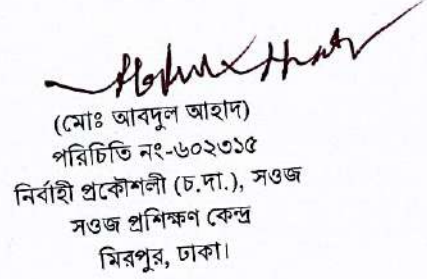 (মোঃ আবদুল আহাদ)
পরিচিতি নং-৬০২৩১৫
নির্বাহী প্রকৌশলী (চ.দা.), সওজ
সওজ প্রশিক্ষণ কেন্দ্র
মিরপুর, ঢাকা।